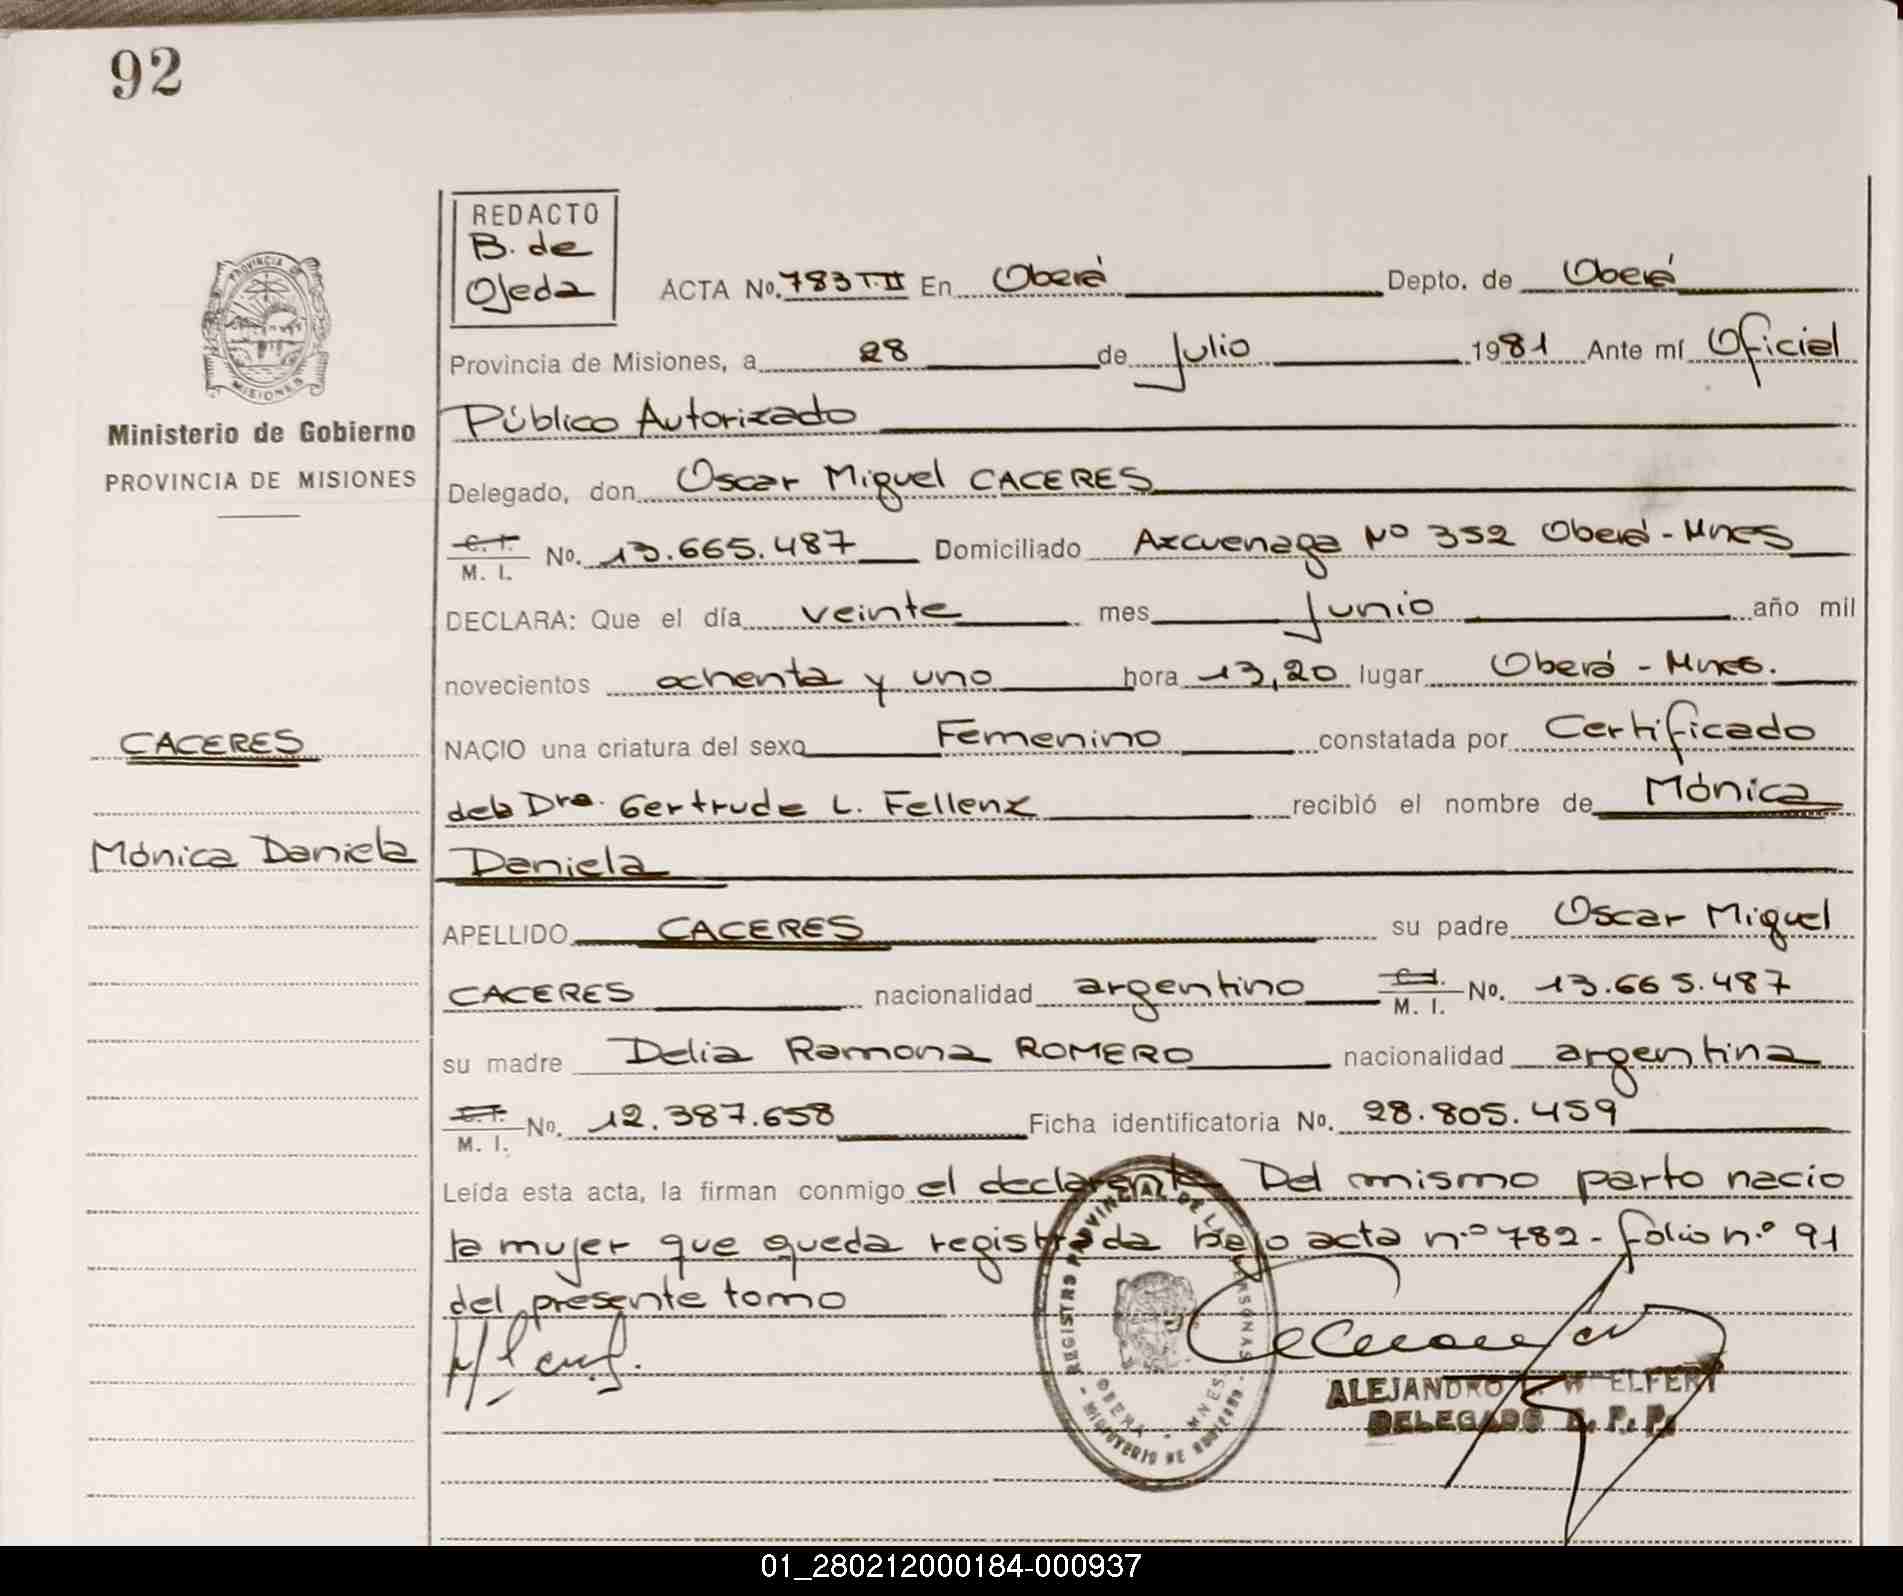 92
REDACTO
B. de
Ojeda
ACTA No. 783 T.II En Oberá Depto. de Oberá
Provincia de Misiones, a 28 de Julio 1981 Ante mí Oficial
Público Autorizado
Delegado, don Oscar Miguel CACERES
C. I. / M. I. No. 13.665.487 Domiciliado Azcuenaga No 352 Oberá - Mnes
DECLARA: Que el día veinte mes Junio año mil
novecientos ochenta y uno hora 13,20 lugar Oberá - Mnes.
NACIO una criatura del sexo Femenino constatada por Certificado
de la Dra. Gertrude L. Fellenz recibió el nombre de Mónica
Daniela
APELLIDO CACERES su padre Oscar Miguel
CACERES nacionalidad argentino C. I. / M. I. No. 13.665.487
su madre Delia Ramona ROMERO nacionalidad argentina
C. I. / M. I. No. 12.387.658 Ficha identificatoria No. 28.805.459
Leída esta acta, la firman conmigo el declarante Del mismo parto nacio
la mujer que queda registrada bajo acta n.º 782 - folio n.º 91
del presente tomo
PROVINCIA DE
MISIONES
Ministerio de Gobierno
PROVINCIA DE MISIONES
CACERES
Mónica Daniela
REGISTRO PROVINCIAL DE LAS PERSONAS
OBERA - MNES.
- MINISTERIO DE GOBIERNO -
ALEJANDRO
DELEGADO R. P. P.
01_280212000184-000937